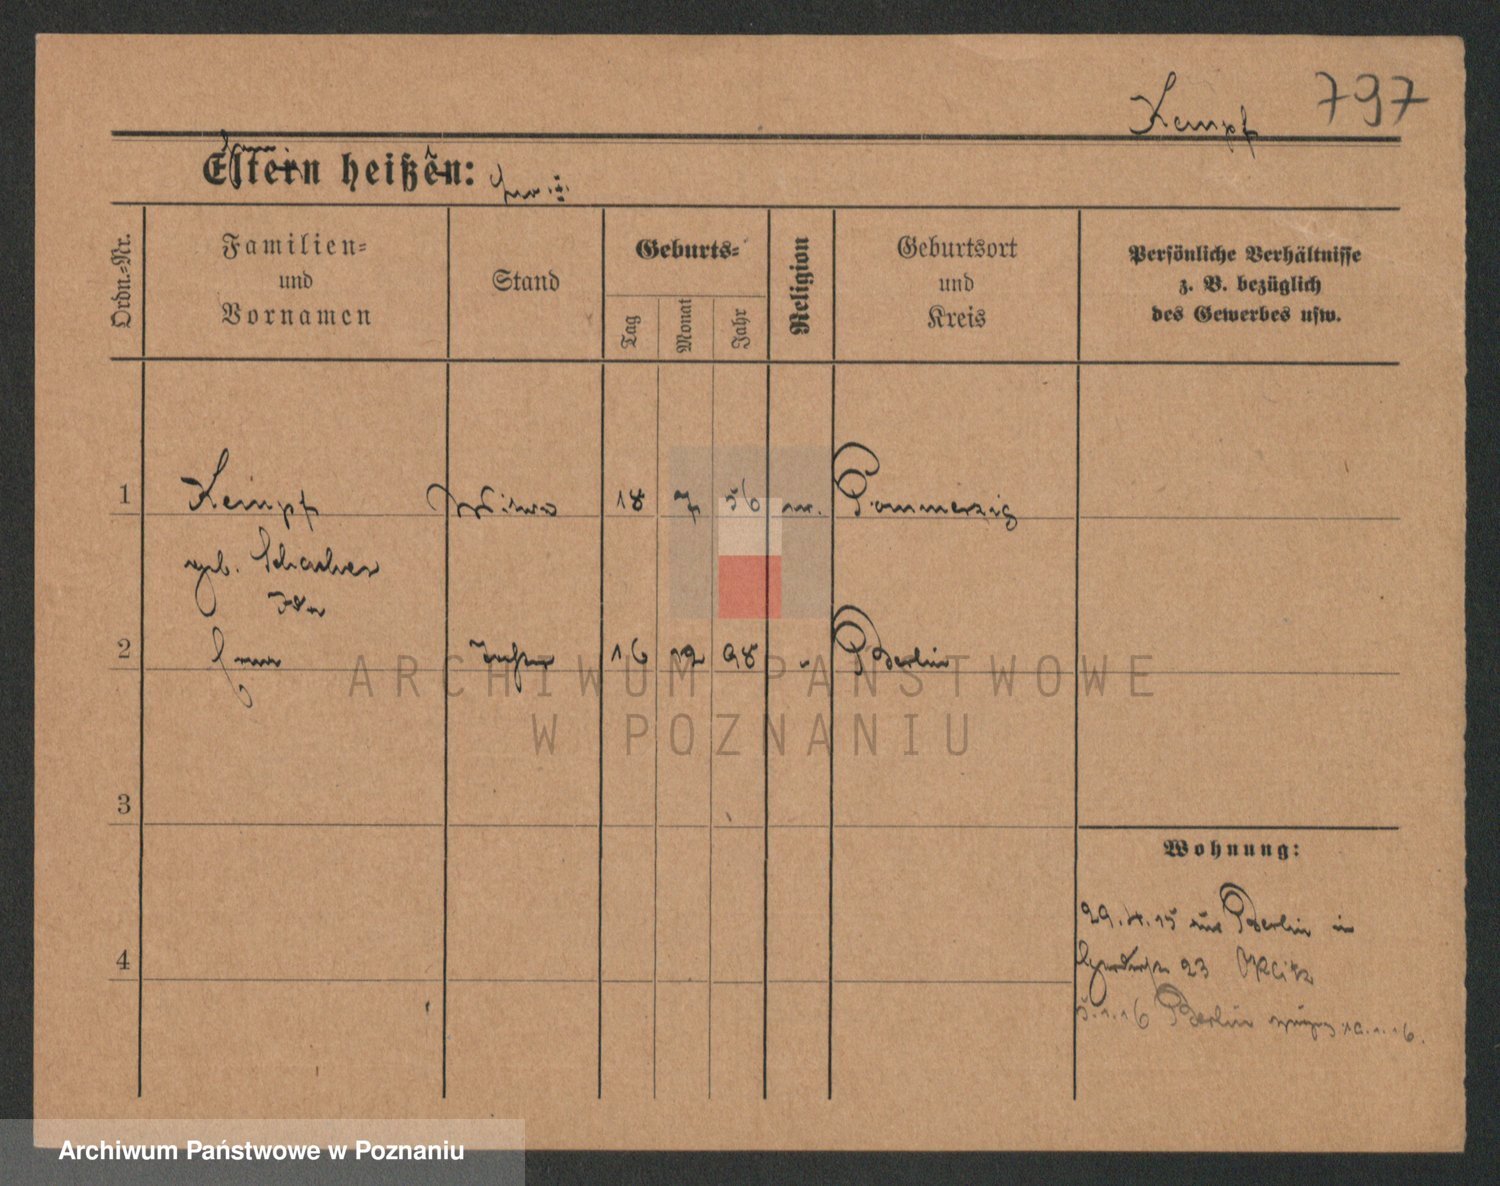 Kempf 797
Eltern heißen:
Ordn.=Nr.
Familien=
und
Vornamen
Stand
Geburts=
Tag
Monat
Jahr
Religion
Geburtsort
und
Kreis
Persönliche Verhältnisse
z. B. bezüglich
des Gewerbes usw.
1 Kempf Witwe 18 7 56 Pommerzig
geb.
2 Tochter 16 12 98 Berlin
3
4
Wohnung:
29.4.15 aus Berlin in
23
5.1.16 Berlin 10.1.16.
ARCHIWUM PAŃSTWOWE
W POZNANIU
Archiwum Państwowe w Poznaniu